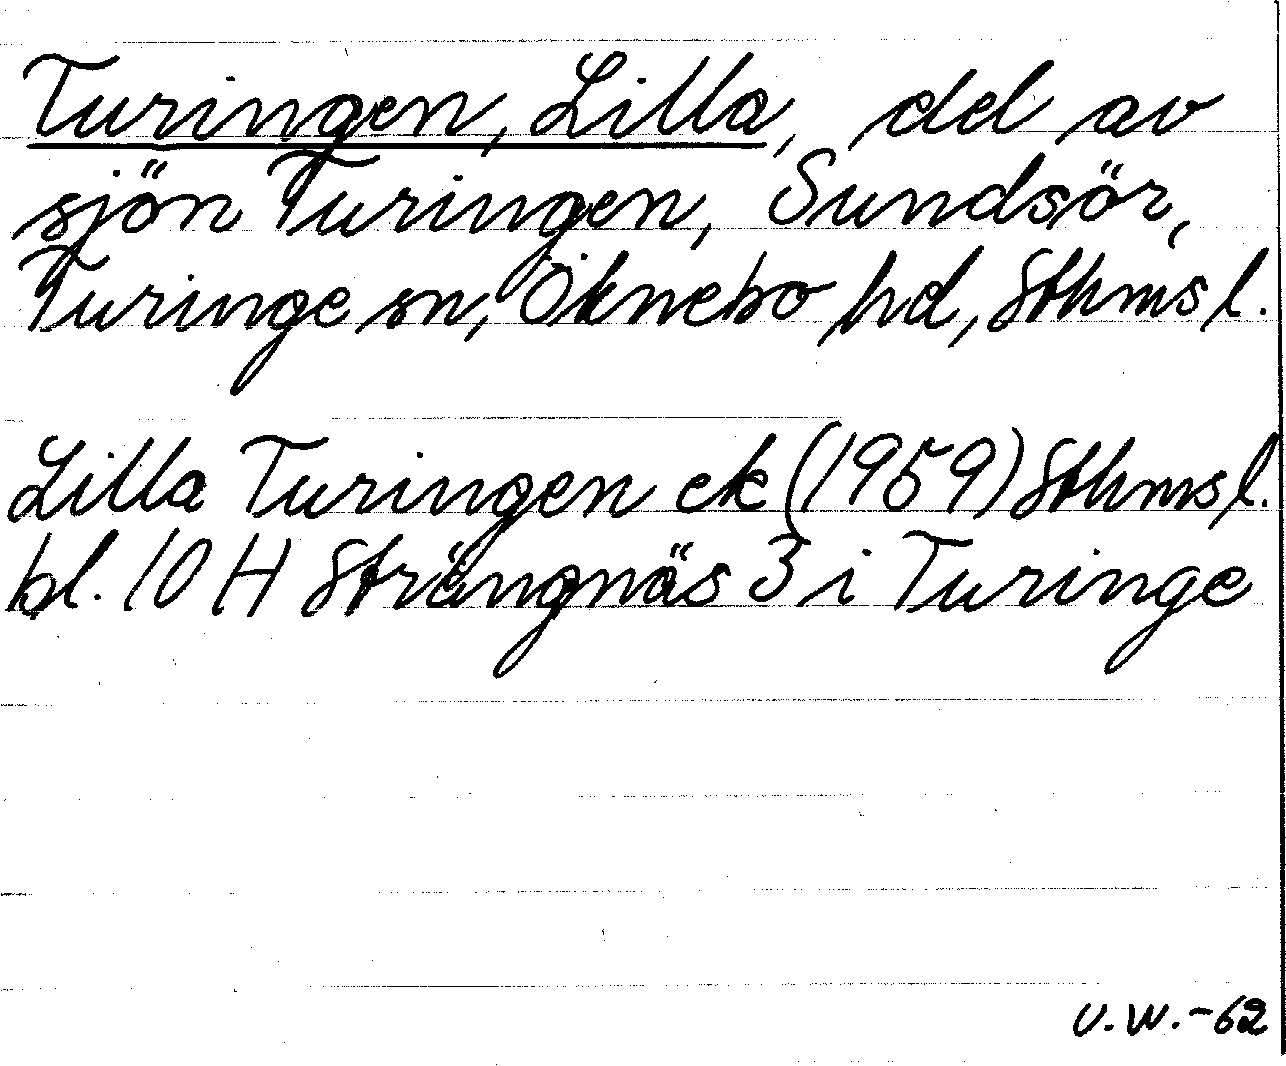 Turingen, Lilla, del av
sjön Turingen, Sundsör,
Turinge sn, Öknebo hd, Sthms l.
Lilla Turingen ek (1959) Sthms l.
bl. 10 H Strängnäs 3 i Turinge
U.W.-62